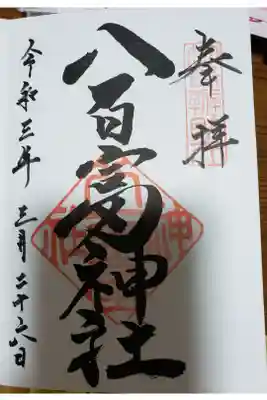 奉拝
八百富神社
令和三年三月二十六日